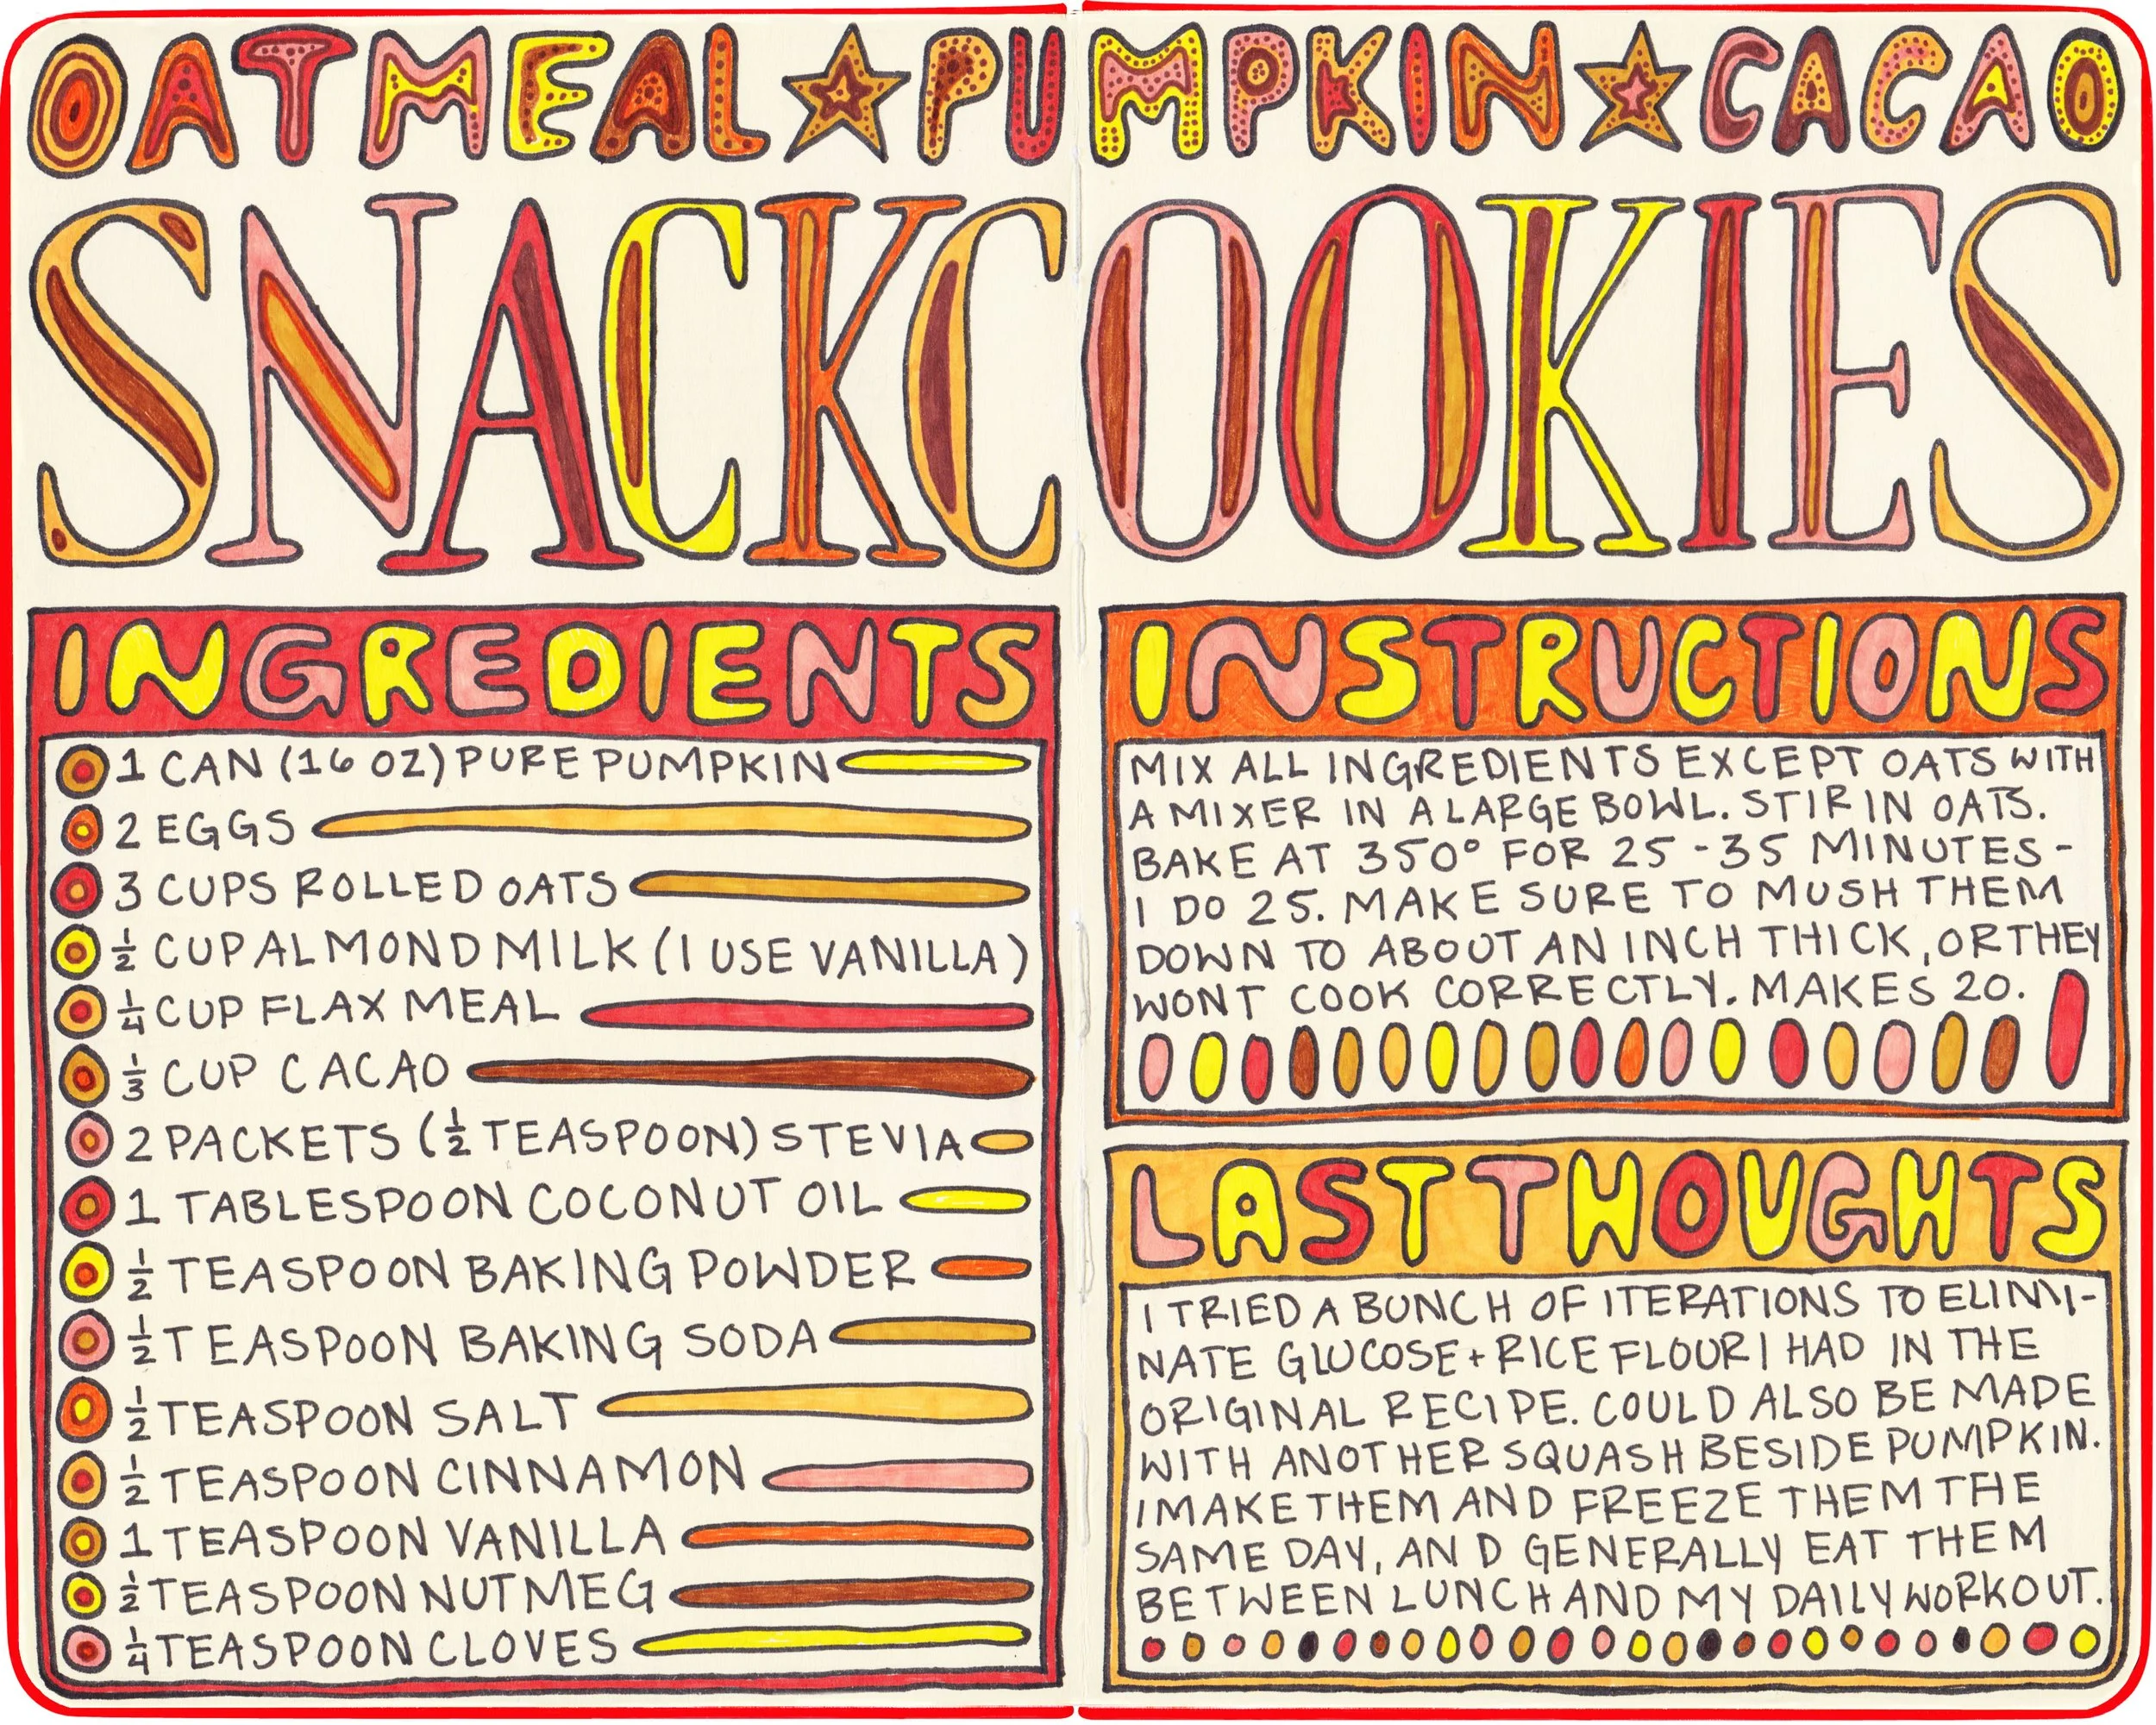 OATMEAL ★ PUMPKIN ★ CACAO
SNACKCOOKIES
INGREDIENTS
1 CAN (16 OZ) PURE PUMPKIN
2 EGGS
3 CUPS ROLLED OATS
½ CUP ALMOND MILK (I USE VANILLA)
¼ CUP FLAX MEAL
⅓ CUP CACAO
2 PACKETS (½ TEASPOON) STEVIA
1 TABLESPOON COCONUT OIL
½ TEASPOON BAKING POWDER
½ TEASPOON BAKING SODA
½ TEASPOON SALT
½ TEASPOON CINNAMON
1 TEASPOON VANILLA
½ TEASPOON NUTMEG
¼ TEASPOON CLOVES
INSTRUCTIONS
MIX ALL INGREDIENTS EXCEPT OATS WITH
A MIXER IN A LARGE BOWL. STIR IN OATS.
BAKE AT 350° FOR 25-35 MINUTES-
I DO 25. MAKE SURE TO MUSH THEM
DOWN TO ABOUT AN INCH THICK, OR THEY
WONT COOK CORRECTLY. MAKES 20.
LAST THOUGHTS
I TRIED A BUNCH OF ITERATIONS TO ELIMI-
NATE GLUCOSE + RICE FLOUR I HAD IN THE
ORIGINAL RECIPE. COULD ALSO BE MADE
WITH ANOTHER SQUASH BESIDE PUMPKIN.
I MAKE THEM AND FREEZE THEM THE
SAME DAY, AND GENERALLY EAT THEM
BETWEEN LUNCH AND MY DAILY WORKOUT.